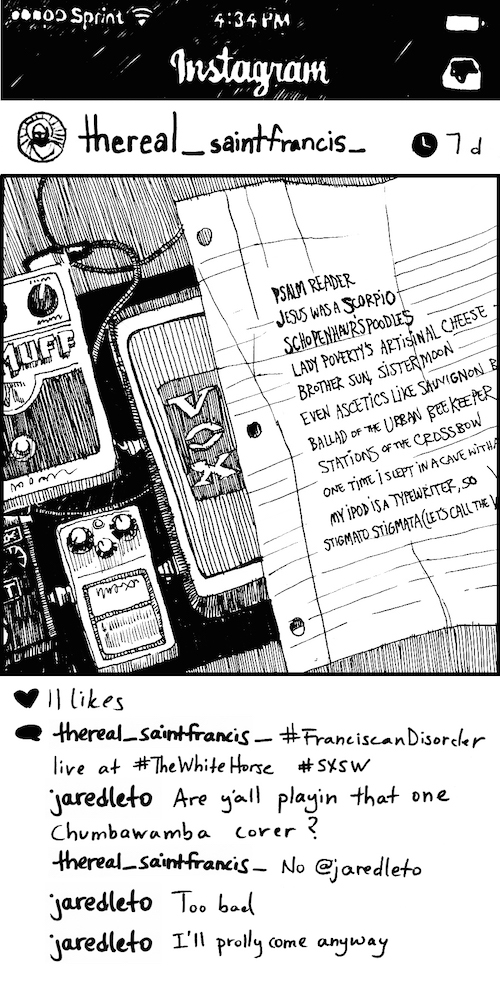 Sprint 4:34 PM
Instagram
thereal_saintfrancis_ 7d
MUFF
VOX
PSALM READER
JESUS WAS A SCORPIO
SCHOPENHAUR'S POODLES
LADY POVERTY'S ARTISINAL CHEESE
BROTHER SUN, SISTER MOON
EVEN ASCETICS LIKE SAUVIGNON B
BALLAD OF THE URBAN BEEKEEPER
STATIONS OF THE CROSSBOW
ONE TIME I SLEPT IN A CAVE WITH A
MY IPOD IS A TYPEWRITER, SO
STIGMATO STIGMATA (LET'S CALL THE
11 likes
thereal_saintfrancis_ #FranciscanDisorder
live at #TheWhiteHorse #SXSW
jaredleto Are y'all playin that one
Chumbawamba cover?
thereal_saintfrancis_ No @jaredleto
jaredleto Too bad
jaredleto I'll prolly come anyway